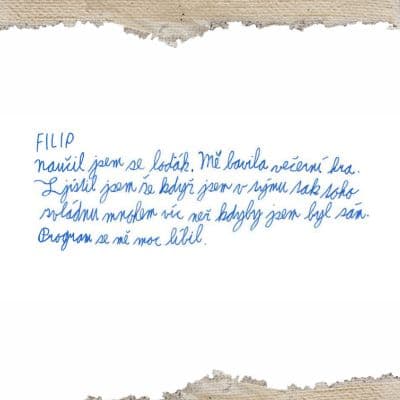 FILIP
naučil jsem se loďák. Mě bavila večerní hra.
Zjistil jsem že když jsem v týmu tak toho
zvládnu mnohem víc než kdyby jsem byl sám.
Program se mě moc líbil.